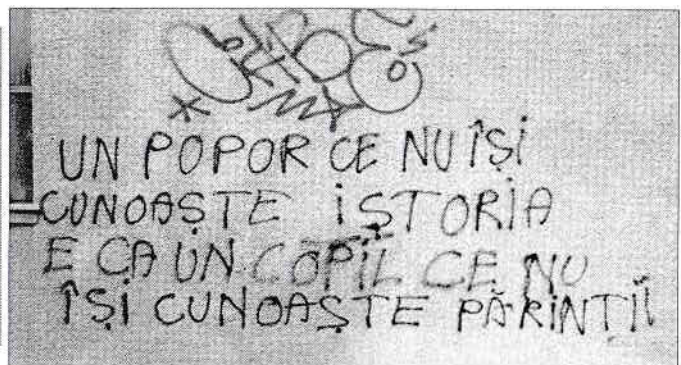 UN POPOR CE NU ÎȘI
CUNOAȘTE İȘTORİA
E CA UN COPİL CE NU
ÎȘİ CUNOAȘTE PĂRINȚİİ